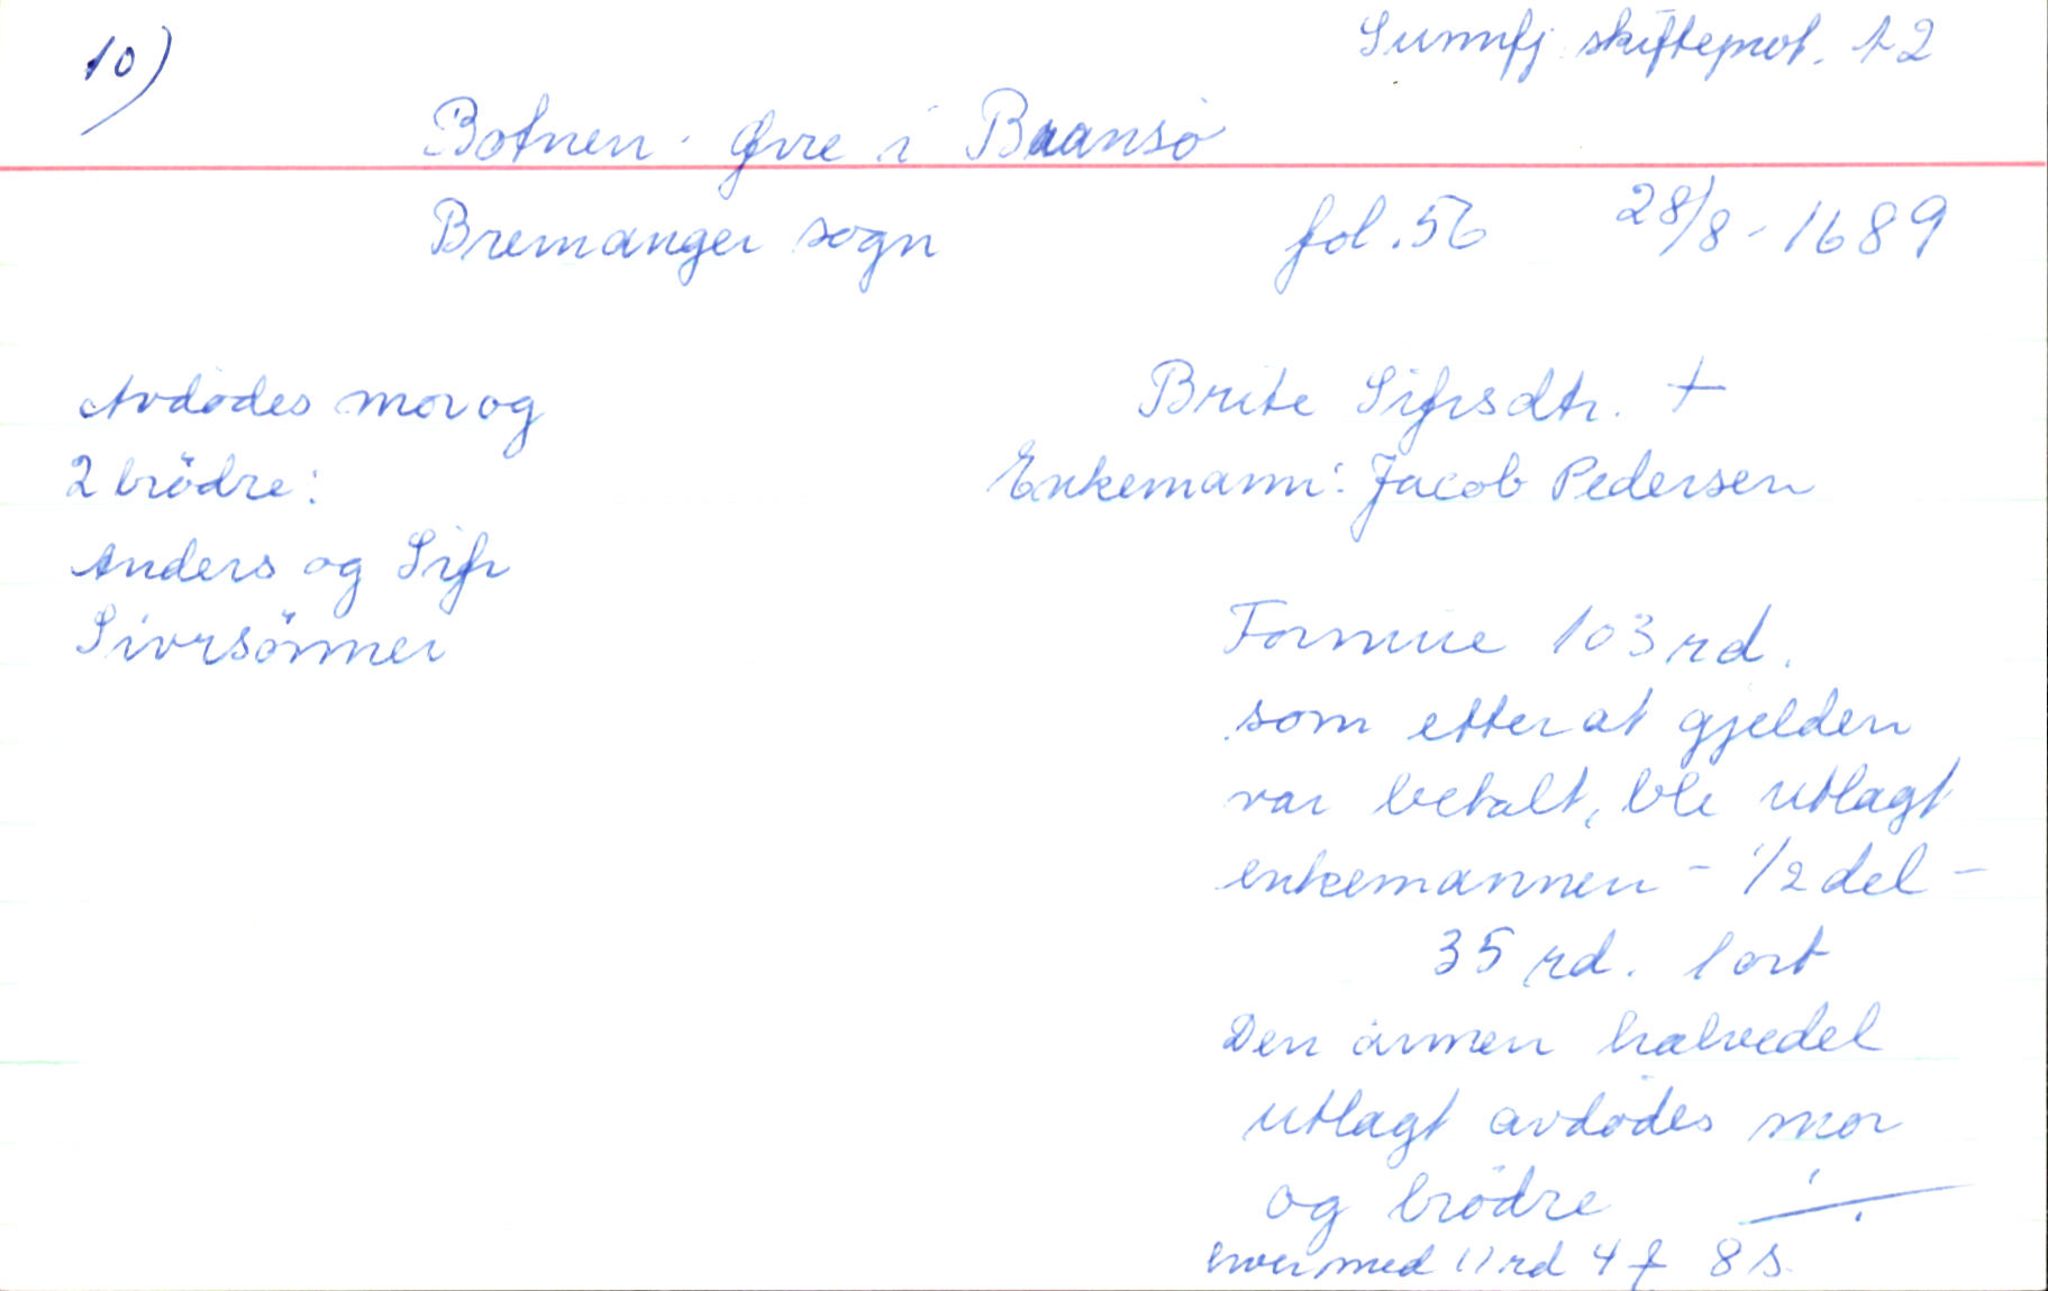 10)
Sunnfj. skifteprot. 12
Botnen - Øvre i Bransø
Bremanger sogn fol. 56 28/8 - 1689
Avdødes mor og
2 brödre:
Anders og Sifr
Sivrsönner
Brite Sifrsdtr. +
Enkemann: Jacob Pedersen
Formue 103 rd.
som etter at gjelden
var betalt, ble utlagt
enkemannen - 1/2 del -
35 rd. 1 ort
Den annen halvedel
utlagt avdødes mor
og brødre
hver med 11 rd 4 ꝑ 8 s.